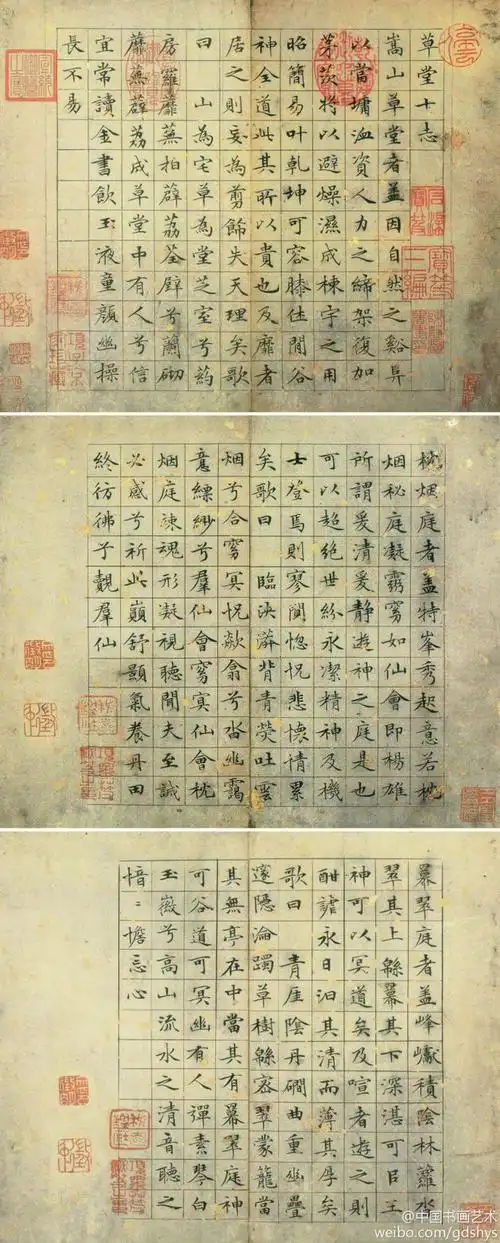 草堂十志
嵩山草堂者盖因自然之谿阜
以當墉洫資人力之締架復加
茅茨將以避燥濕成棟宇之用
昭簡易叶乾坤可容膝休閒谷
神全道此其所以貴也及靡者
居之則妄為剪飾失天理矣歌
曰 山為宅草為堂芝室兮葯
房羅蘼蕪拍薜荔荃壁兮蘭砌
蘼蕪薜荔成草堂中有人兮信
宜常讀金書飲玉液童顏幽操
長不易
枕烟庭者盖特峯秀起意若枕
烟秘庭凝霛窅如仙會即楊雄
所謂爰清爰静遊神之庭是也
可以超絕世紛永潔精神及機
士登焉則寥闃惚怳悲懷情累
矣歌曰 臨泱漭背青熒吐雲
烟兮合窅冥怳欻翕兮沓幽靄
意縹緲兮羣仙會窅冥仙會枕
烟庭竦魂形凝視聽聞夫至誠
必感兮祈此巔舒顥氣養丹田
終彷彿予覿羣仙
羃翠庭者盖峰巘積陰林蘿沓
翠其上緜羃其下深湛可以王
神可以冥道矣及喧者遊之則
酣謔永日汩其清而薄其厚矣
歌曰 青崖陰丹磵曲重幽疊
邃隱淪躅草樹緜宻翠蒙籠當
其無亭在中當其有羃翠庭神
可谷道可冥幽有人彈素琴白
玉徽兮高山流水之清音聽之
愔〻憺忘心
@中国书画艺术
weibo.com/gdshys